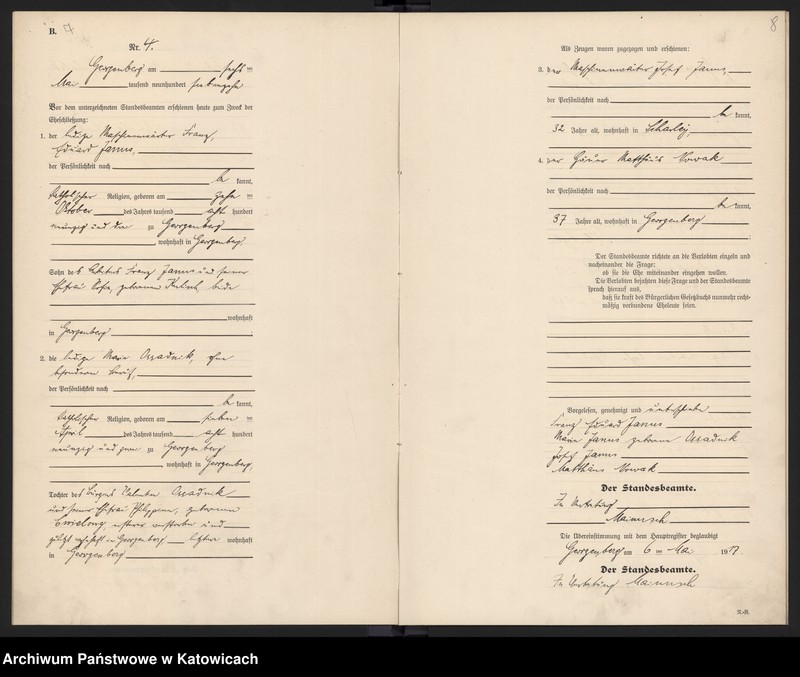 B. 7
Nr. 4.
Georgenberg am sechs ten
Mai tausend neunhundert siebenzehn
Vor dem unterzeichneten Standesbeamten erschienen heute zum Zweck der
Eheschließung:
1. der ledige Maschinenwärter Franz
Eduard Janus,
der Persönlichkeit nach
be kannt,
katholischer Religion, geboren am zehn ten
Oktober des Jahres tausend acht hundert
neunzig und drei zu Georgenberg
, wohnhaft in Georgenberg,
Sohn des Franz Janus und seiner
Ehefrau geborenen beide
wohnhaft
in Georgenberg.
2. die ledige Marie Ossadnik, ohne
besonderen Beruf,
der Persönlichkeit nach
be kannt,
katholischer Religion, geboren am sieben ten
April des Jahres tausend acht hundert
neunzig und zwei zu Georgenberg
, wohnhaft in Georgenberg,
Tochter des Valentin Ossadnik
und seiner Ehefrau Philippine, geborenen
Cwielong, ersterer verstorben und
zuletzt wohnhaft in Georgenberg letztere wohnhaft
in Georgenberg
8
Als Zeugen waren zugezogen und erschienen:
3. der Maschinenwärter Josef Janus,
der Persönlichkeit nach
be kannt,
32 Jahre alt, wohnhaft in Scharley,
4. der Häuer Matthäus Nowak
der Persönlichkeit nach
be kannt,
37 Jahre alt, wohnhaft in Georgenberg
Der Standesbeamte richtete an die Verlobten einzeln und
nacheinander die Frage:
ob sie die Ehe miteinander eingehen wollen.
Die Verlobten bejahten diese Frage und der Standesbeamte
sprach hierauf aus,
daß sie kraft des Bürgerlichen Gesetzbuchs nunmehr recht-
mäßig verbundene Eheleute seien.
Vorgelesen, genehmigt und unterschrieben
Franz Eduard Janus
Marie Janus geborene Ossadnik
Josef Janus
Matthäus Nowak
Der Standesbeamte.
In Vertretung
Die Übereinstimmung mit dem Hauptregister beglaubigt
Georgenberg am 6 ten Mai 1917.
Der Standesbeamte.
In Vertretung
Archiwum Państwowe w Katowicach